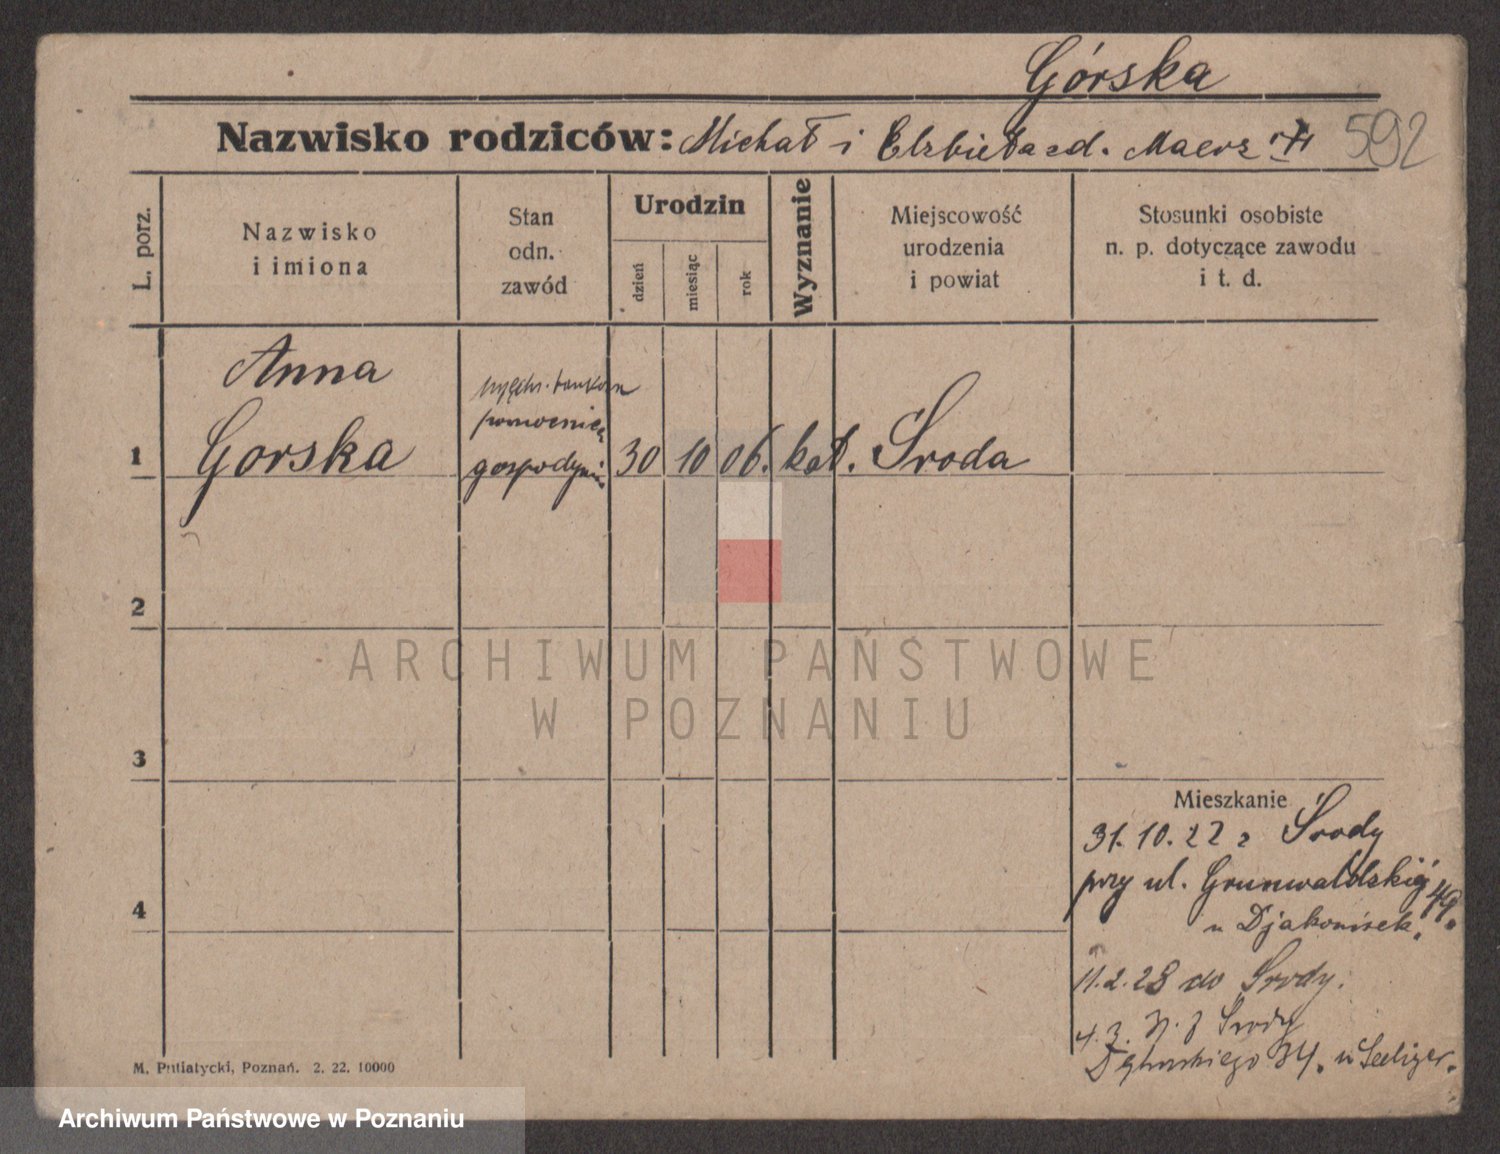 Górska
Nazwisko rodziców: Michał i Elżbieta zd. Maerz 592
L. porz.
Nazwisko
i imiona
Stan
odn.
zawód
Urodzin
dzień
miesiąc
rok
Wyznanie
Miejscowość
urodzenia
i powiat
Stosunki osobiste
n. p. dotyczące zawodu
i t. d.
Anna
pomocnica
1 Gorska gospodyni 30 10 06. kat. Środa
2
3
4
Mieszkanie
31.10.22 z Środy
przy ul. Grunwaldskiéj 49.
u Djakonisek.
11.2.28 do Środy.
Środy
34. u Seeliger.
M. Putiatycki, Poznań. 2. 22. 10000
ARCHIWUM PAŃSTWOWE
W POZNANIU
Archiwum Państwowe w Poznaniu